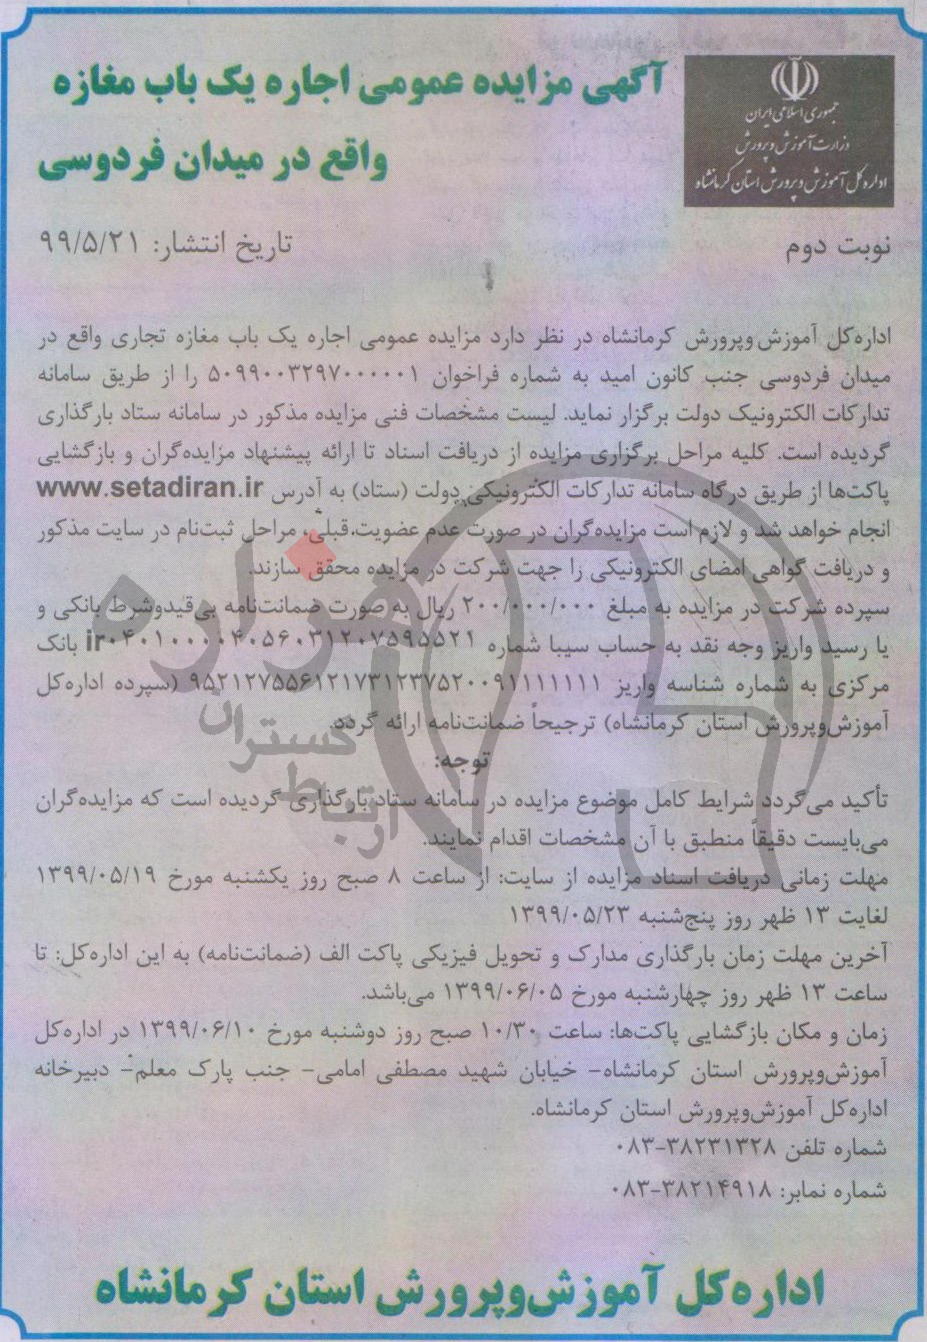 جمهوری اسلامی ایران
وزارت آموزش و پرورش
اداره کل آموزش و پرورش استان کرمانشاه
آگهی مزایده عمومی اجاره یک باب مغازه
واقع در میدان فردوسی
نوبت دوم
تاریخ انتشار: ۹۹/۵/۲۱
اداره‌کل آموزش‌وپرورش کرمانشاه در نظر دارد مزایده عمومی اجاره یک باب مغازه تجاری واقع در
میدان فردوسی جنب کانون امید به شماره فراخوان ۵۰۹۹۰۰۳۲۹۷۰۰۰۰۰۱ را از طریق سامانه
تدارکات الکترونیک دولت برگزار نماید. لیست مشخصات فنی مزایده مذکور در سامانه ستاد بارگذاری
گردیده است. کلیه مراحل برگزاری مزایده از دریافت اسناد تا ارائه پیشنهاد مزایده‌گران و بازگشایی
پاکت‌ها از طریق درگاه سامانه تدارکات الکترونیکی دولت (ستاد) به آدرس www.setadiran.ir
انجام خواهد شد و لازم است مزایده‌گران در صورت عدم عضویت قبلی، مراحل ثبت‌نام در سایت مذکور
و دریافت گواهی امضای الکترونیکی را جهت شرکت در مزایده محقق سازند.
سپرده شرکت در مزایده به مبلغ ۲۰۰/۰۰۰/۰۰۰ ریال به صورت ضمانت‌نامه بی‌قیدوشرط بانکی و
یا رسید واریز وجه نقد به حساب سیبا شماره ir۰۴۰۱۰۰۰۰۴۰۵۶۰۳۱۲۰۷۵۹۵۵۲۱ بانک
مرکزی به شماره شناسه واریز ۹۵۲۱۲۷۵۵۶۱۲۱۷۳۱۲۳۷۵۲۰۰۹۱۱۱۱۱۱۱ (سپرده اداره‌کل
آموزش‌وپرورش استان کرمانشاه) ترجیحاً ضمانت‌نامه ارائه گردد.
توجه:
تأکید می‌گردد شرایط کامل موضوع مزایده در سامانه ستاد بارگذاری گردیده است که مزایده‌گران
می‌بایست دقیقاً منطبق با آن مشخصات اقدام نمایند.
مهلت زمانی دریافت اسناد مزایده از سایت: از ساعت ۸ صبح روز یکشنبه مورخ ۱۳۹۹/۰۵/۱۹
لغایت ۱۳ ظهر روز پنج‌شنبه ۱۳۹۹/۰۵/۲۳
آخرین مهلت زمان بارگذاری مدارک و تحویل فیزیکی پاکت الف (ضمانت‌نامه) به این اداره‌کل: تا
ساعت ۱۳ ظهر روز چهارشنبه مورخ ۱۳۹۹/۰۶/۰۵ می‌باشد.
زمان و مکان بازگشایی پاکت‌ها: ساعت ۱۰/۳۰ صبح روز دوشنبه مورخ ۱۳۹۹/۰۶/۱۰ در اداره‌کل
آموزش‌وپرورش استان کرمانشاه- خیابان شهید مصطفی امامی- جنب پارک معلم- دبیرخانه
اداره‌کل آموزش‌وپرورش استان کرمانشاه.
شماره تلفن ۳۸۲۳۱۳۲۸-۰۸۳
شماره نمابر: ۳۸۲۱۴۹۱۸-۰۸۳
اداره‌کل آموزش‌وپرورش استان کرمانشاه
هزاره
گستران
ارتباط